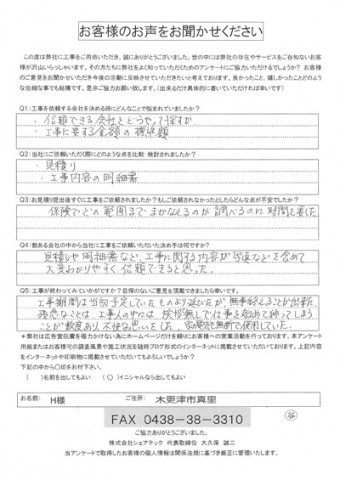 お客様のお声をお聞かせください
この度は弊社に工事をご用命いただき、誠にありがとうございました。世の中には弊社の存在やサービスをご存知ないお客
様が沢山いらっしゃいます。その方たちに弊社をよく知っていただくためのアンケートにご協力いただけるでしょうか？ お客様
のご意見をお聞かせいただき今後の活動に反映させていただきたいと考えております。良かったこと、嬉しかったことどのよう
な些細な事でも結構です。是非ご協力お願い致します。(出来るだけ具体的に書いていただければ幸いです)
Q1:工事を依頼する会社を決める時にどんなことで悩まれていましたか？
・信頼できる会社をどうやって探すか
・工事に要する金額の標準額
Q2:当社にご依頼いただく際にどのような点を比較・検討されましたか？
・見積り
・工事内容の明細書
Q3:お見積り提出後すぐに工事をご依頼されましたか？もしご依頼されなかったとしたらどんな点が不安でしたか？
保険でどの範囲までまかなえるのか調べるのに時間を要した
Q4:数ある会社の中から当社に工事をご依頼いただいた決め手は何ですか？
見積りや明細書など、工事に関する内容が写真なども含めて
大変わかりやすく信頼できると思った。
Q5:工事が終わってみていかがですか？忌憚のないご意見を頂戴できましたら幸いです。
工事期間は当初予定していたものより延びたが、無事終えることが出来た。
残念なことは、工事人の中には、挨拶無しで仕事を始めて帰ってしまう
ことが数度あり、不快な思いをした。
※弊社は広告宣伝費を極力かけない為にホームページだけを頼りにお客様への営業活動を行っております。本アンケート
用紙またはお客様宅の調査風景や施工状況を随時ブログ形式のインターネットに掲載させていただいております。上記内容
をインターネットや印刷物に掲載させていただいてもよろしいでしょうか？
下記の中から〇印をお付下さい。
( )名前を出してもよい (〇)イニシャルなら出してもよい
お名前: H様 ご住所: 木更津市真里
FAX 0438-38-3310
ご協力ありがとうございました。
株式会社シェアテック 代表取締役 大久保 誠二
当アンケートで取得したお客様の個人情報は関係法規に基づき厳正に管理いたします。